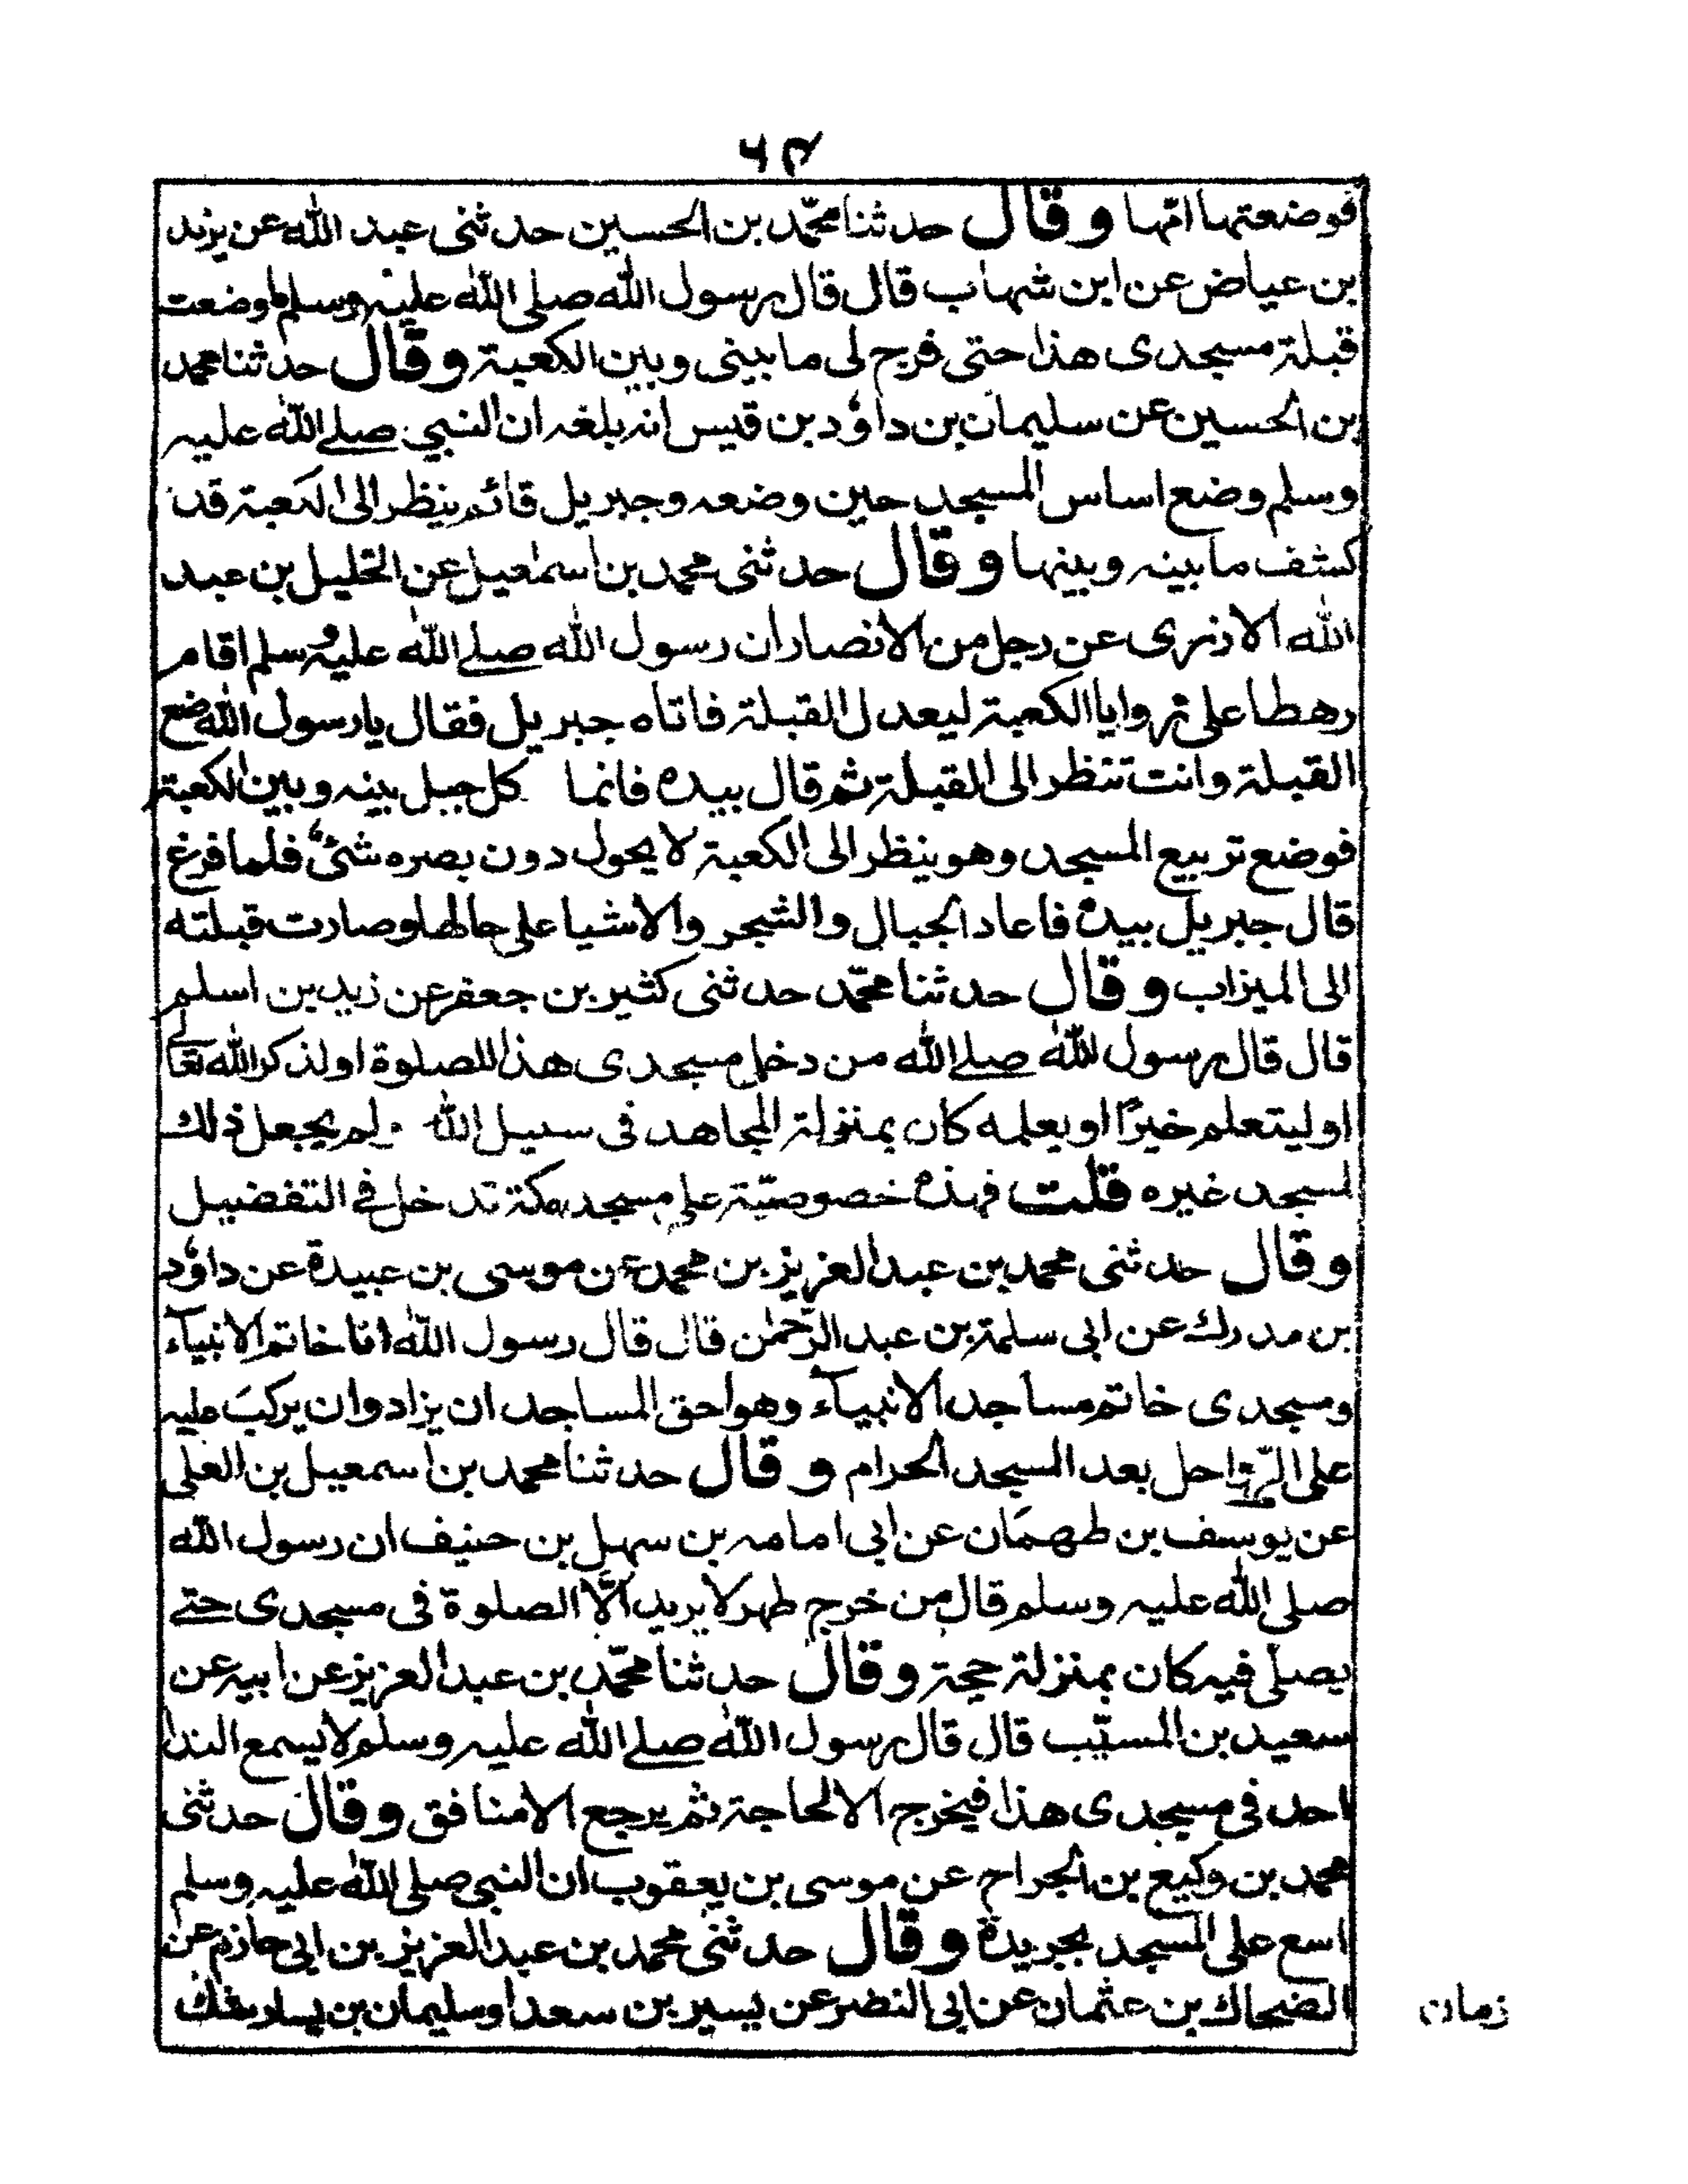 ٦٣
فوضعتها امّها وقال حدثنا محمّد بن الحسين حدثنی عبد الله عن یزید
بن عیاض عن ابن شهاب قال قال رسول الله صلی الله علیه وسلم ما وضعت
قبلة مسجدی هذا حتی فرج لی ما بینی و بین الکعبة وقال حدثنا محمد
بن الحسین عن سلیمان بن داؤد بن قیس انه بلغه ان النبی صلے الله علیه
وسلم وضع اساس المسجد حین وضعه وجبریل قائم ینظر الی الکعبة قد
کشف ما بینه وبینها وقال حدثنی محمد بن اسمٰعیل عن الخلیل بن عبد
الله الازدی عن رجل من الانصار ان رسول الله صلے الله علیه وسلم اقام
رهطا علی زوایا الکعبة لیعدل القبلة فاتاه جبریل فقال یا رسول الله ضع
القبلة وانت تنظر الی القبلة ثم قال بیده فانما کل جبل بینه و بین الکعبة
فوضع تربیع المسجد وهو ینظر الی الکعبة لا یحول دون بصره شئ فلما فرغ
قال جبریل بیده فاعاد الجبال والشجر والاشیا علی حالها وصارت قبلته
الی المیزاب وقال حدثنا محمّد حدثنی کثیر بن جعفر عن زید بن اسلم
قال قال رسول الله صلے الله من دخل مسجدی هذا للصلوة او لذکر الله تعالے
او لیتعلم خیرًا او یعلمه کان بمنزلة المجاهد فی سبیل الله ولم یجعل ذلك
لمسجد غیره قلت فهذه خصوصیّة علی مسجد مکة تدخل فے التفضیل
وقال حدثنی محمد بن عبد العزیز بن محمد عن موسی بن عبیدة عن داؤد
بن مدرك عن ابی سلمة بن عبد الرّحمٰن قال قال رسول الله انا خاتم الانبیآء
ومسجدی خاتم مساجد الانبیآء وهو احق المساجد ان یزاد وان یرکب علیه
علی الرّواحل بعد المسجد الحرام وقال حدثنا محمد بن اسمعیل بن المعلی
عن یوسف بن طهمان عن ابی امامه بن سهل بن حنیف ان رسول الله
صلی الله علیه وسلم قال من خرج طهر لا یرید الّا الصلوة فی مسجدی حتے
یصلی فیه کان بمنزلة حجة وقال حدثنا محمّد بن عبد العزیز عن ابیه عن
سعید بن المسیّب قال قال رسول الله صلے الله علیه وسلم لا یسمع الندا
احد فی مسجدی هذا فیخرج الا لحاجة ثم یرجع الا منافق وقال حدثنی
محمد بن وکیع بن الجراح عن موسی بن یعقوب ان النبی صلی الله علیه وسلم
اسع علی المسجد بجریدة وقال حدثنی محمد بن عبد العزیز بن ابی حازم عن
الضحاك بن عثمان عن ابی النضر عن یسیر بن سعد او سلیمان بن یسار
زمان